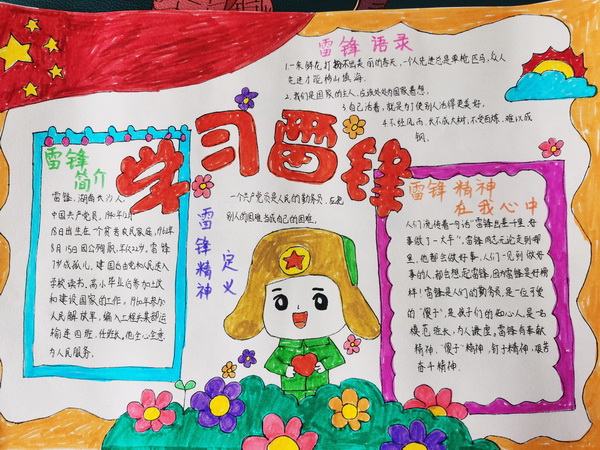 雷锋语录
1.一朵鲜花打扮不出美丽的春天,一个人先进总是单枪匹马,众人
先进才能移山填海。
2.我们是国家的主人,应该处处为国家着想。
3.自己活着,就是为了使别人活得更美好。
4.不经风雨,长不成大树,不受百炼,难以成
钢。
学习雷锋
雷锋
简介
雷锋,湖南长沙人,
中国共产党员,1940年12月
18日出生在一个贫苦农民家庭,1962年
8月15日因公殉职,年仅22岁。雷锋
7岁成孤儿,建国后由党和人民送入
学校读书,高小毕业后参加土改
和建设国家的工作,1960年参加
人民解放军,编入工程兵某部运
输连四班,任班长。他全心全意
为人民服务。
雷锋精神
定义
一个共产党员是人民的勤务员,应把
别人的困难当成自己的困难。
雷锋精神
在我心中
人们流传着一句话"雷锋出差一千里,好
事做了一火车",雷锋同志无论走到哪
里,他都会做好事,人们一见到做好
事的人,都会想起雷锋,因为雷锋是好榜
样!雷锋是人们的勤务员,是一位可爱
的"傻子",是孩子们的知心人,是名
模范班长,为人谦虚,雷锋有奉献
精神,"傻子"精神,钉子精神,艰苦
奋斗精神。